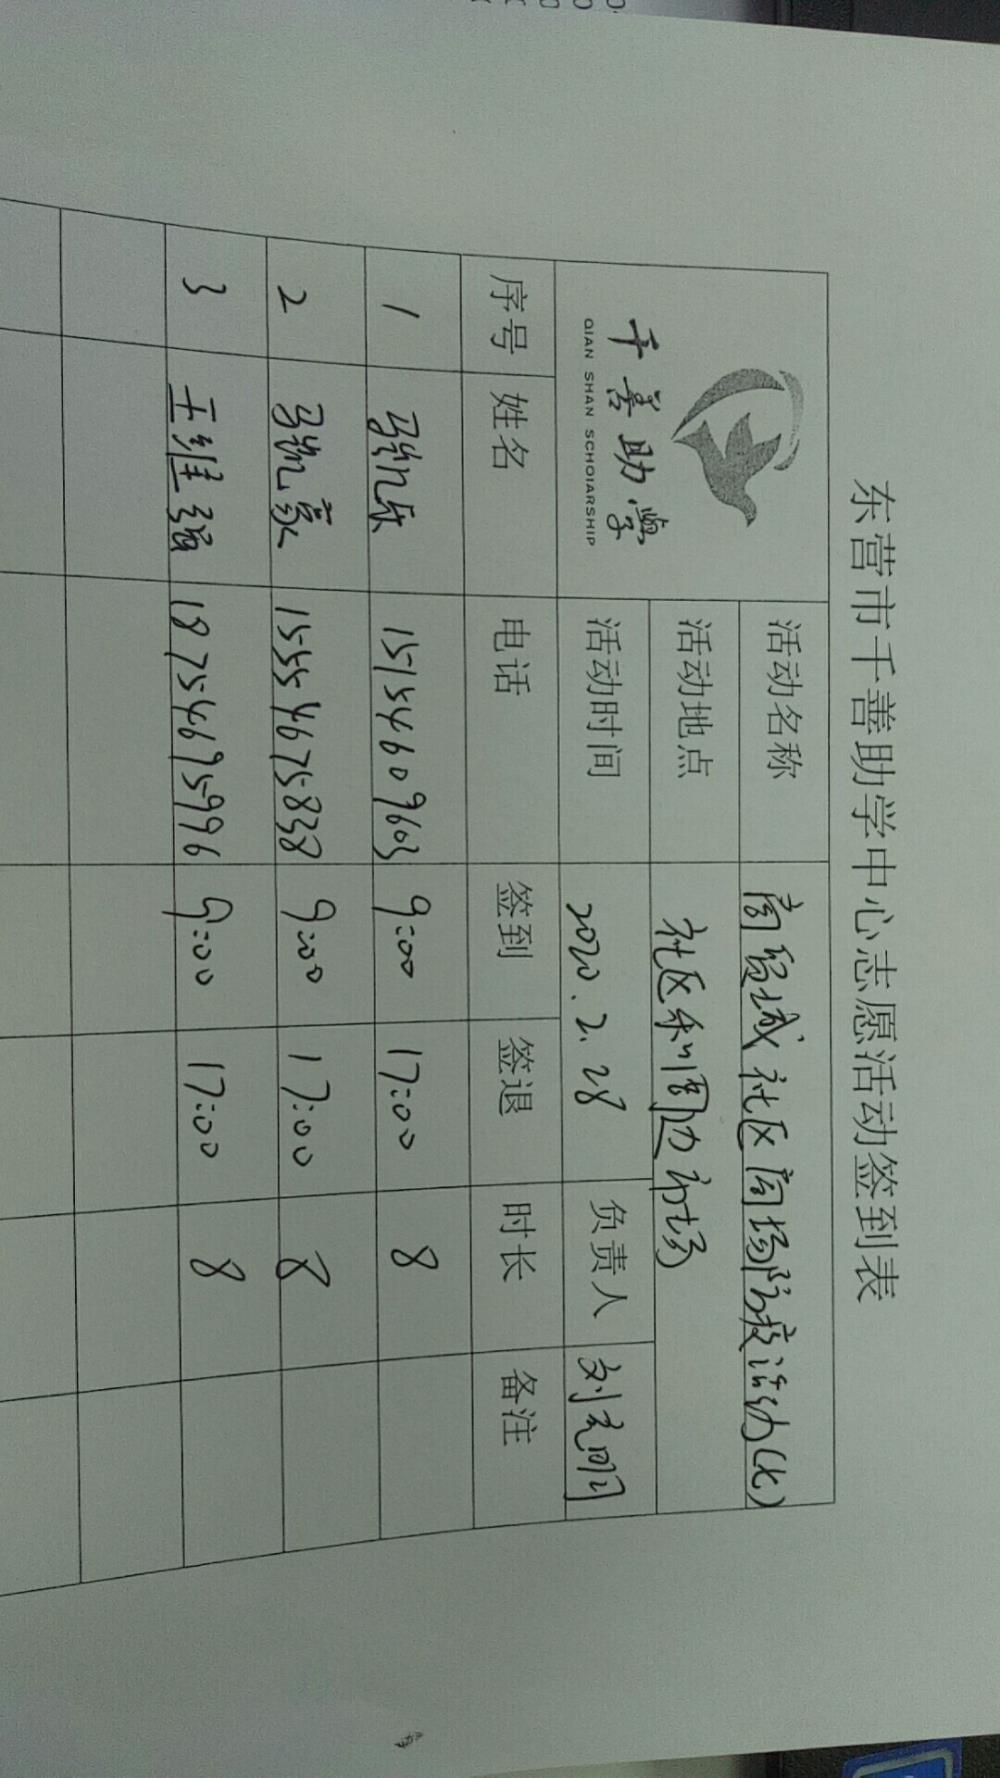 东营市千善助学中心志愿活动签到表
千善助学
QIAN SHAN SCHOIARSHIP
活动名称 商贸城社区商场防疫活动(七)
活动地点 社区和周边市场
活动时间 2020.2.28 负责人 刘志明
序号 姓名 电话 签到 签退 时长 备注
1 马凯乐 15154609603 9:00 17:00 8
2 马凯豪 15554675838 9:00 17:00 8
3 王维强 18754695996 9:00 17:00 8